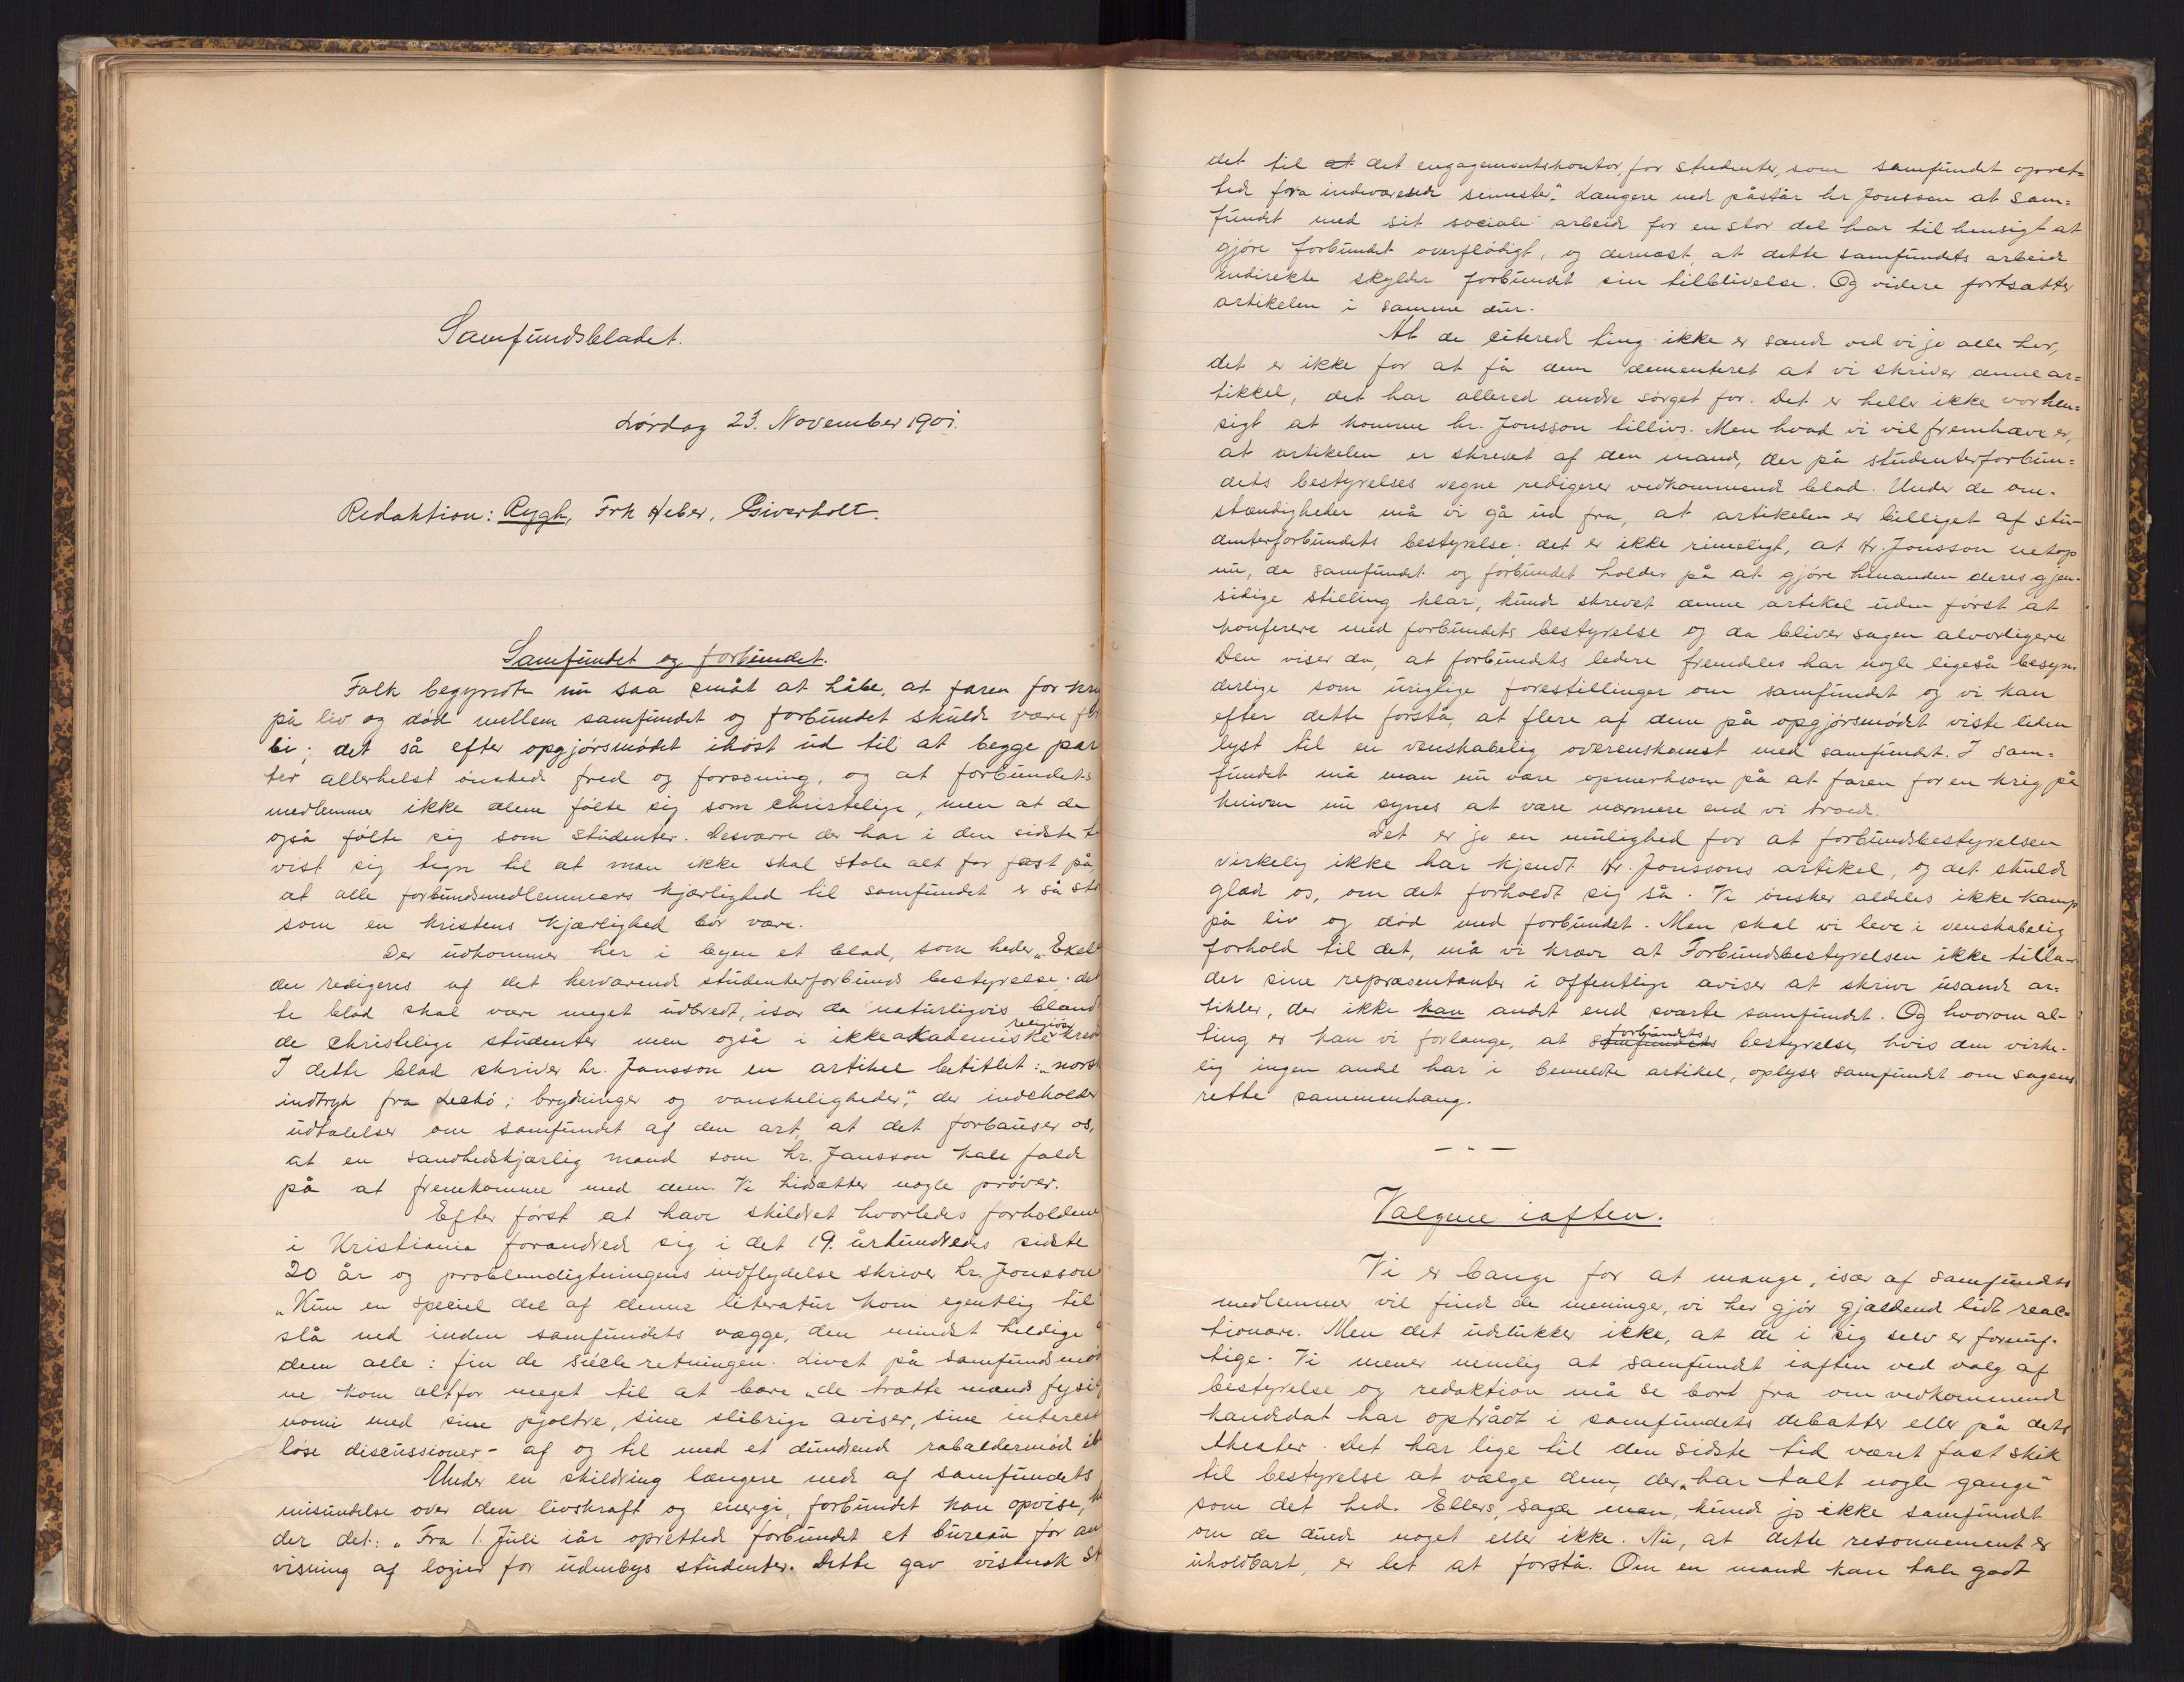 Samfundsbladet.
Lørdag 23. November 1901.
Redaktion: Rygh, Frk Heber, Giverholt.
Samfundet og forbundet.
Folk begyndte nu saa småt at håbe, at faren for kri
på liv og død mellem samfundet og forbundet skulde være for
bi; det så efter opgjørsmødet ihøst ud til at begge par
ter allerhelst ønskede fred og forsoning, og at forbundets
medlemmer ikke alene følte sig som christelige, men at de
også følte sig som studenter. Desværre der har i den sidste t
vist sig tegn til at man ikke skal stole alt for fast på,
at alle forbundsmedlemmers kjærlighed til samfundet er så sto
som en kristens kjærlighed bør være.
Der udkommer her i byen et blad, som heder „Exel
der redigeres af det herværende studenterforbunds bestyrelse; det
te blad skal være meget udbredt, især da naturligvis bland
de christelige studenter men også i ikkeakademiske religiøse kred
I dette blad skriver hr. Jansson en artikel betitlet: „norsk
indtryk fra Leckö; brydninger og vanskeligheder“, der indeholder
udtalelser om samfundet af den art, at det forbauser os,
at en sandhedskjærlig mand som hr. Jansson kale falde
på at fremkomme med dem. Vi hidsætter nogle prøver.
Efter først at have skildret hvorledes forholdene
i Kristiania forandrede sig i det 19. århundredes sidste
20 år og problemdigtningens indflydelse skriver hr. Jonsson
„Kun en speciel del af denne literatur kom egentlig til
slå ned inden samfundets vægge, den mindst heldige
dem alle: fin de siècle retningen. Livet på samfundsmød
ne kom altfor meget til at bære „de trætte mænds fysiog
nomi med sine pjoltre, sine slibrige aviser, sine interess
løse discussioner – af og til med et dundrende rabaldermøde ib
Under en skildring længere nede af samfundets
misundelse over den livskraft og energi, forbundet kan opvise, h
der det: „Fra 1. Juli iår oprettede forbundet et bureau for an
visning af logier for udenbys studenter. Dette gav vistnok St
det til at det engagementskontor, for studenter, som samfundet opret-
tede fra indeværende semester“. Længere ned påstår hr. Jonsson at Sam-
fundet med sit sociale arbeide for en stor del har til hensigt at
gjøre forbundet overflødigt, og dernæst, at dette samfundets arbeide
indirekte skylder forbundet sin tilblivelse. Og videre fortsætter
artikelen i samme dur.
At de citerede ting ikke er sande ved vi jo alle her,
det er ikke for at få dem dementeret at vi skriver denne ar-
tikkel, det har allerede andre sørget for. Det er heller ikke vor hen-
sigt at komme hr. Jonsson tillivs. Men hvad vi vil fremhæve er,
at artikelen er skrevet af den mand, der på studenterforbun-
dets bestyrelses vegne redigerer vedkommende blad. Under de om-
stændigheder må vi gå ud fra, at artikelen er billiget af stu-
denterforbundets bestyrelse; det er ikke rimeligt, at Hr. Jonsson netop
nu, da samfundet og forbundet holder på at gjøre hinanden deres gjen-
sidige stilling klar, kunde skrevet denne artikel uden først at
konferere med forbundets bestyrelse og da bliver sagen alvorligere
Den viser da, at forbundets ledere fremdeles har nogle ligeså besyn-
derlige som urigtige forestillinger om samfundet og vi kan
efter dette forstå, at flere af dem på opgjørsmødet viste liden
lyst til en venskabelig overenskomst med samfundet. I sam-
fundet må man nu være opmerksom på at faren for en krig på
kniven nu synes at være nærmere end vi troede.
Det er jo en mulighed for at forbundsbestyrelsen
virkelig ikke har kjendt Hr. Jonssons artikel, og det skulde
glæde os, om det forholdt sig så. Vi ønsker aldeles ikke kamp
på liv og død med forbundet. Men skal vi leve i venskabelig
forhold til det, må vi kræve at Forbundsbestyrelsen ikke tilla-
der sine repræsentanter i offentlige aviser at skrive usande ar-
tikler, der ikke kan andet end sværte samfundet. Og hvorom al-
ting er kan vi forlange, at samfundets forbundets bestyrelse, hvis den virke-
lig ingen andel har i bemeldte artikel, oplyser samfundet om sagens
rette sammenhæng.
— - —
Valgene iaften.
Vi er bange for at mange, især af samfundets
medlemmer vil finde de meninger, vi her gjør gjældende lidt reak-
tionære. Men det udelukker ikke, at de i sig selv er fornuf-
tige. Vi mener nemlig at samfundet iaften ved valg af
bestyrelse og redaktion må se bort fra om vedkommende
kandidat har optrådt i samfundets debatter eller på dets
theater. Det har lige til den sidste tid været fast skik
til bestyrelse at vælge dem, der „har talt nogle gange“
som det hed. Ellers, sagde man, kunde jo ikke samfundet
om de duede noget eller ikke. Nu, at dette resonnement er
uholdbart, er let at forstå. Om en mand kan tale godt